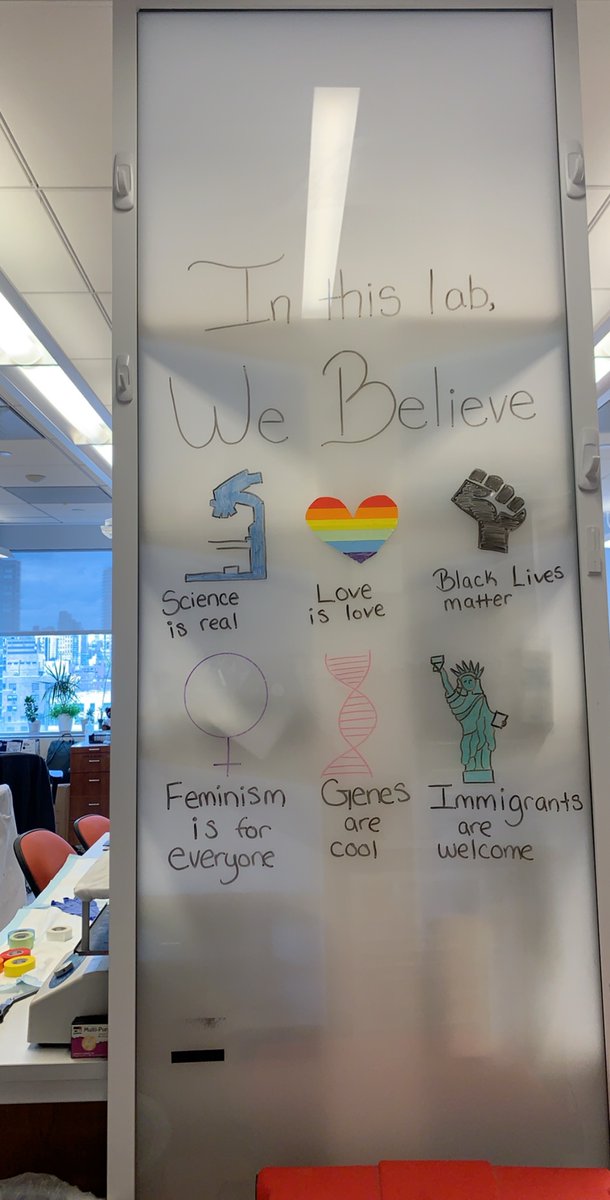 In this lab,
We Believe
Science
is real
Love
is love
Black Lives
matter
Feminism
is for
everyone
Genes
are
cool
Immigrants
are
welcome